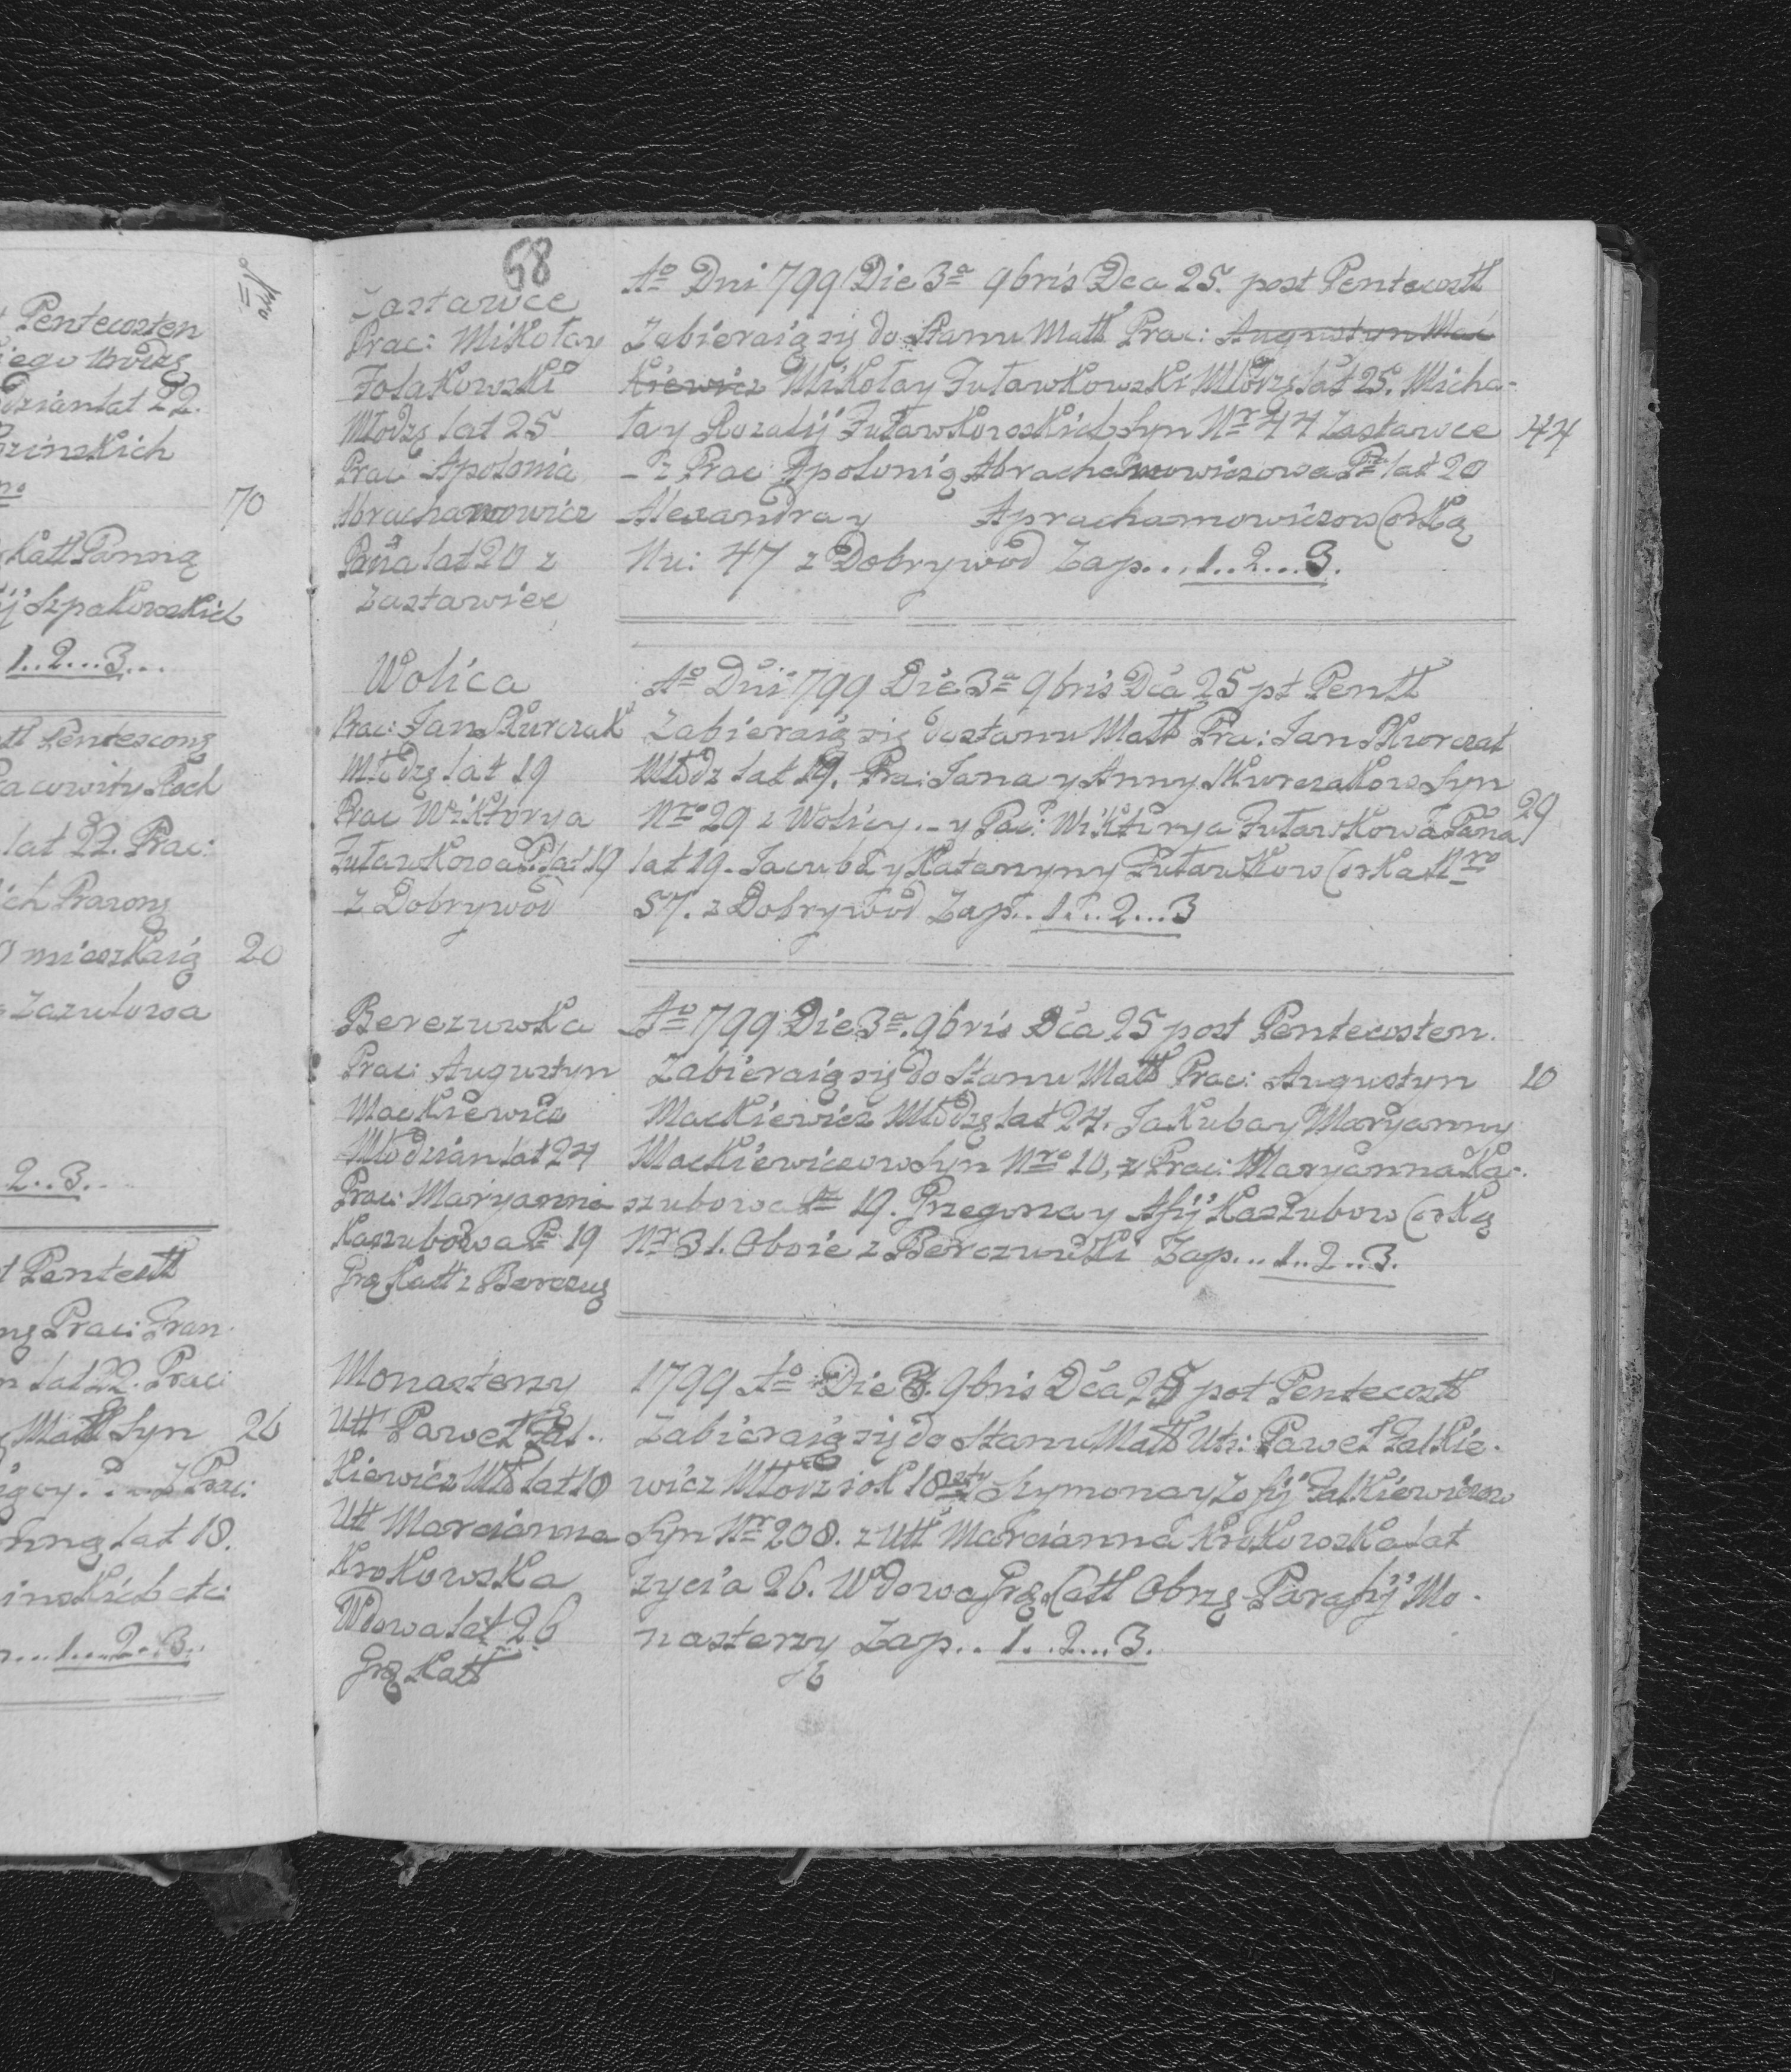 Nro
t Pentecosten
iego Młodzę
dzian lat 22.
rzinskich
no
70
Katt Panną
ij Szpakowskich
1..2...3...
tt Pentescong
acowity Roch
lat 22. Prac:
ich Prawong
0 mieszkaią 20
Zazulowa
2..3.
t Pentestt
ng Prac: Fran.
n lat 22. Prac:
Matt Syn 26
Prac:
nną lat 18.
inskich etc:
...1...2..3..
68
Zastawce
Prac: Mikołay
Fołakowski
Młodzę lat 25
Prac: Apolonia
Abrachamowicz
Pańa lat 20 z
Zastawiec
Ao Dni 799 Die 3a 9bris Dca 25. post Pentecostt
Zabieraią się do Stanu Matt Prac: Augustyn Mac
Kiewicz Mikołay Futawkowski Młodzę lat 25. Micha-
ła y Rozalij Futawkowskich Syn Nr 44 Zastawce 44
- z Prac Apolonią Abrachamowiczowa Pa lat 20
Alexandra y Aprachamowiczow Corką
Nu: 47 z Dobrywod Zap...1..2...3.
Wolica
Prac: Jan Skurczak
Młodzę lat 19
Prac Wiktorya
Futawkowa P: lat 19
z Dobrywod
Ao Dni 799 Die 3a 9bris Dca 25 pt Pentt
Zabieraią się do stanu Matt Pra: Jan Skurczak
Młodz lat 19. Pra: Jana y Anny Skurczakow Syn
Nro 29 z Wolicy.- y Pac: Wiktorya Futawkowa Pana 29
lat 19- Jacuba y Katarzyny Futawkow Corka Nro
57. z Dobrywod Zap..1...2...3
Berezuwka
Prac: Augustyn
Mackiewicz
Młodzian lat 24
Prac: Maryanna
Kaszubowa Pa 19
Grę Katt z Berezuę
Ao 799 Die 3a. 9bris Dca 25 post Pentecosten.
Zabieraią się do Stanu Matt Prac: Augustyn 10
Mackiewicz Młodzę lat 24. Jakuba y Maryanny
Mackiewiczow Syn Nro 10, z Prac: Maryanna Ka-
szubowa 19. Przegorza y Afij Kaszubow Corką
Nr 31. Oboie z Berezuwki Zap...1..2..3.
Monasterzy
Utt Paweł Fal..
Kiewicz Mło lat 18
Utt Marcianna
Krokowska
Wdowa lat 26
Grę Katt
1799 Ao Die 3. 9bris Dca 25 pot Pentecostt
Zabieraią się do Stanu Matt Utz: Paweł Falkie-
wicz Młodz rok 18sty Szymona y Zofij Falkiewiczow
Syn Nr 208. z Utt Marcianna Krokowska lat
zycia 26. Wdowa Grę. Catt Obrzę Parafij Mo-
nasterzy Zap..1..2...3.